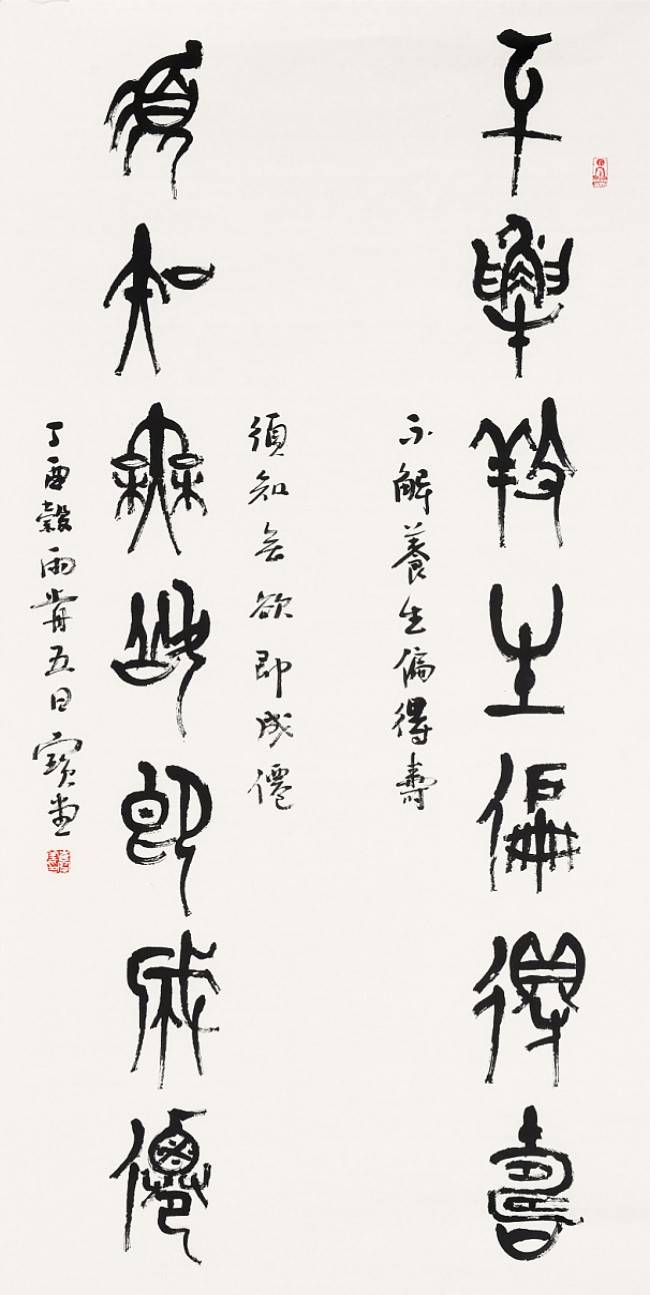 不解養生偏得壽
不解養生偏得壽
須知無欲即成僊
須知無欲即成僊
丁酉穀雨前五日寶